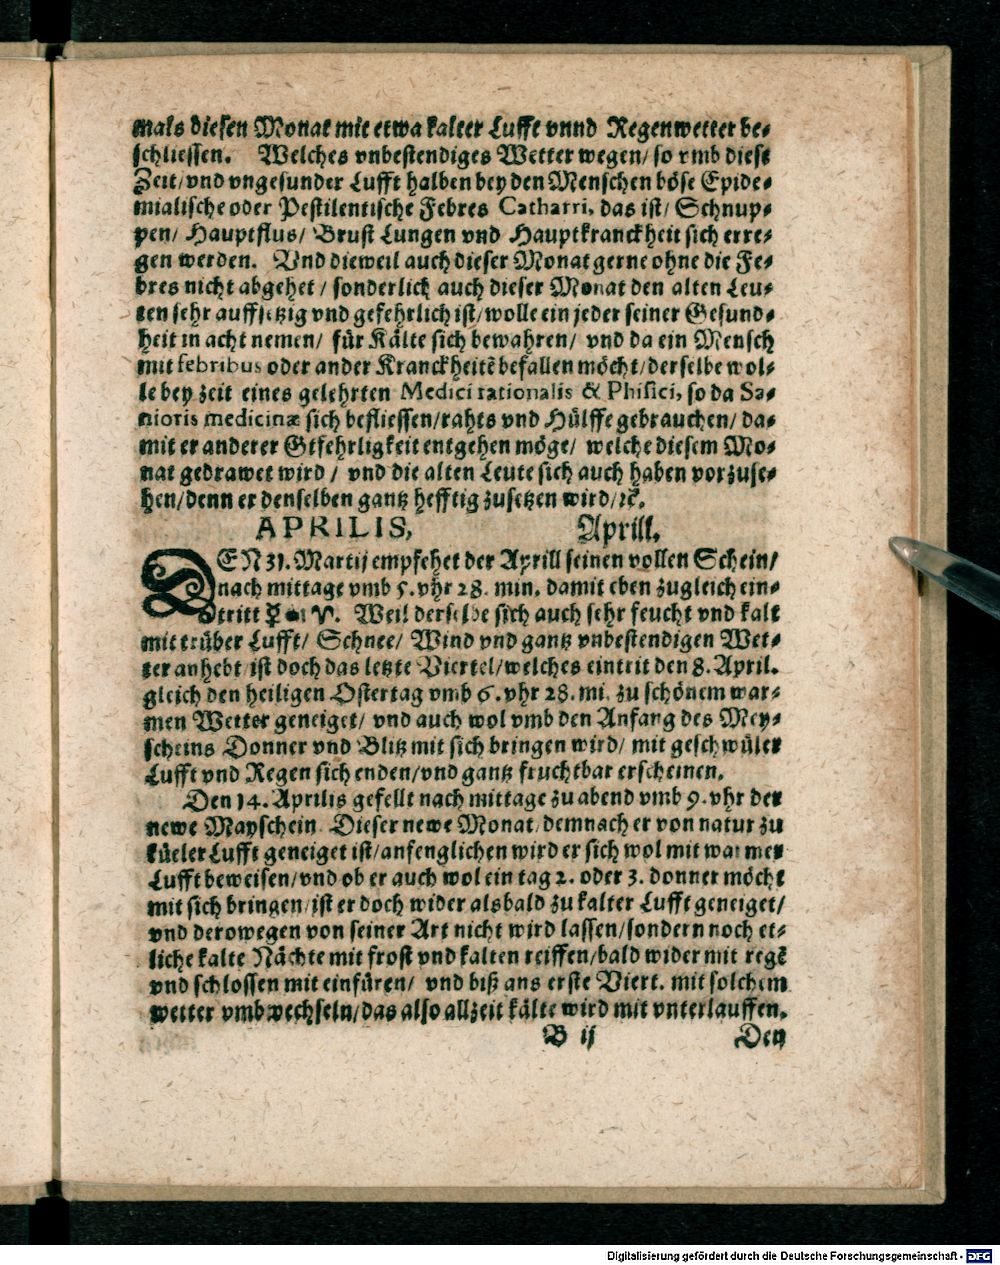 mals diesen Monat mit etwa kalter Lufft vnnd Regenwetter be-
schliessen. Welches vnbestendiges Wetter wegen/ so vmb diese
Zeit/ vnd vngesunder Lufft halben bey den Menschen böse Epide-
mialische oder Pestilentische Febres Catharri, das ist/ Schnup-
pen/ Hauptflus/ Brust Lungen vnd Hauptkranckheit sich erre-
gen werden. Vnd dieweil auch dieser Monat gerne ohne die Fe-
bres nicht abgehet/ sonderlich auch dieser Monat den alten Leu-
ten sehr auffsetzig vnd gefehrlich ist/ wolle ein jeder seiner Gesund-
heit in acht nemen/ für Kälte sich bewahren/ vnd da ein Mensch
mit febribus oder ander Kranckheitẽ befallen möcht/ derselbe wol-
le bey zeit eines gelehrten Medici rationalis & Phisici, so da Sa-
nioris medicinæ sich befliessen/ rahts vnd Hülffe gebrauchen/ da-
mit er anderer Gefehrligkeit entgehen möge/ welche diesem Mo-
nat gedrawet wird/ vnd die alten Leute sich auch haben vorzuse-
hen/ denn er denselben gantz hefftig zusetzen wird/ ꝛc.
APRILIS, Aprill.
DEN 31. Martij empfehet der Aprill seinen vollen Schein/
nach mittage vmb 5. vhr 28. min. damit eben zugleich ein-
tritt ☿ ♈. Weil derselbe sich auch sehr feucht vnd kalt
mit trüber Lufft/ Schnee/ Wind vnd gantz vnbestendigen Wet-
ter anhebt/ ist doch das letzte Viertel/ welches eintrit den 8. April.
gleich den heiligen Ostertag vmb 6. vhr 28. mi. zu schönem war-
men Wetter geneiget/ vnd auch wol vmb den Anfang des Mey-
scheins Donner vnd Blitz mit sich bringen wird/ mit geschwüler
Lufft vnd Regen sich enden/ vnd gantz fruchtbar erscheinen.
Den 14. Aprilis gefellt nach mittage zu abend vmb 9. vhr der
newe Mayschein. Dieser newe Monat/ demnach er von natur zu
küeler Lufft geneiget ist/ anfenglichen wird er sich wol mit warmer
Lufft beweisen/ vnd ob er auch wol ein tag 2. oder 3. donner möcht
mit sich bringen/ ist er doch wider alsbald zu kalter Lufft geneiget/
vnd derowegen von seiner Art nicht wird lassen/ sondern noch et-
liche kalte Nächte mit frost vnd kalten reiffen/ bald wider mit regẽ
vnd schlossen mit einfüren/ vnd biß ans erste Viert. mit solchem
wetter vmbwechseln/ das also allzeit kälte wird mit vnterlauffen.
B ij Den
Digitalisierung gefördert durch die Deutsche Forschungsgemeinschaft - DFG